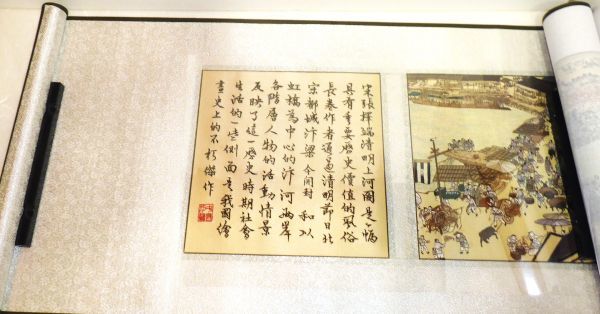 宋張擇端清明上河圖是一幅
具有重要歷史價值的風俗
長卷作者通過清明節日北
宋都城汴梁今開封和以
虹橋為中心的汴河兩岸
各階層人物的活動情景
反映了這一歷史時期社會
生活的一些側面是我國繪
畫史上的不朽傑作